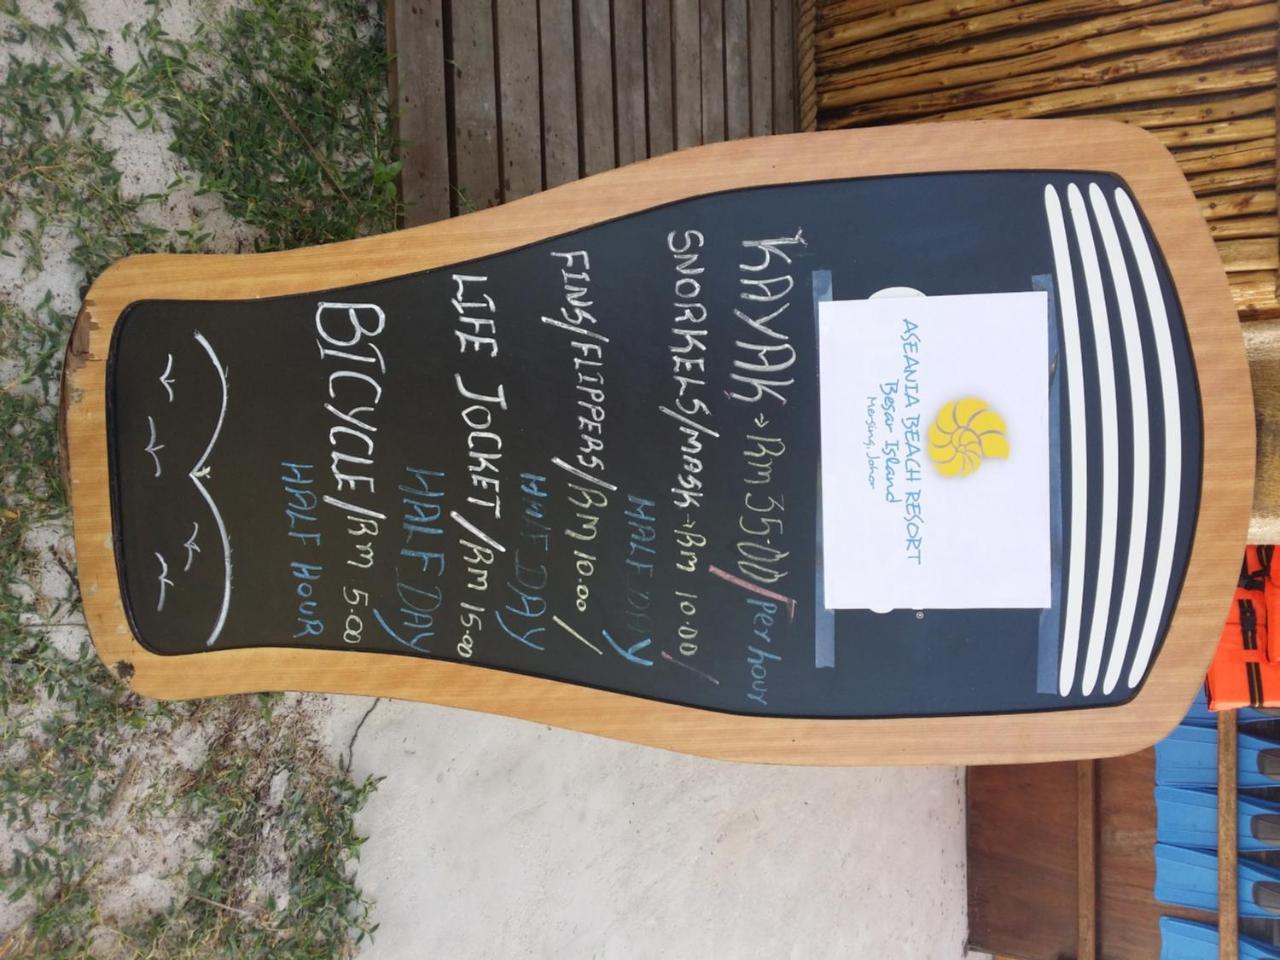 ASEANIA BEACH RESORT
Besar Island
Mersing, Johor
KAYAK → Rm 35.00/per hour
SNORKELS/MASK → Rm 10.00/
HALF DAY
FINS/FLIPPERS/RM 10.00/
HALF DAY
LIFE JOCKET/RM 15.00
HALF DAY
BICYCLE/Rm 5.00
HALF HOUR